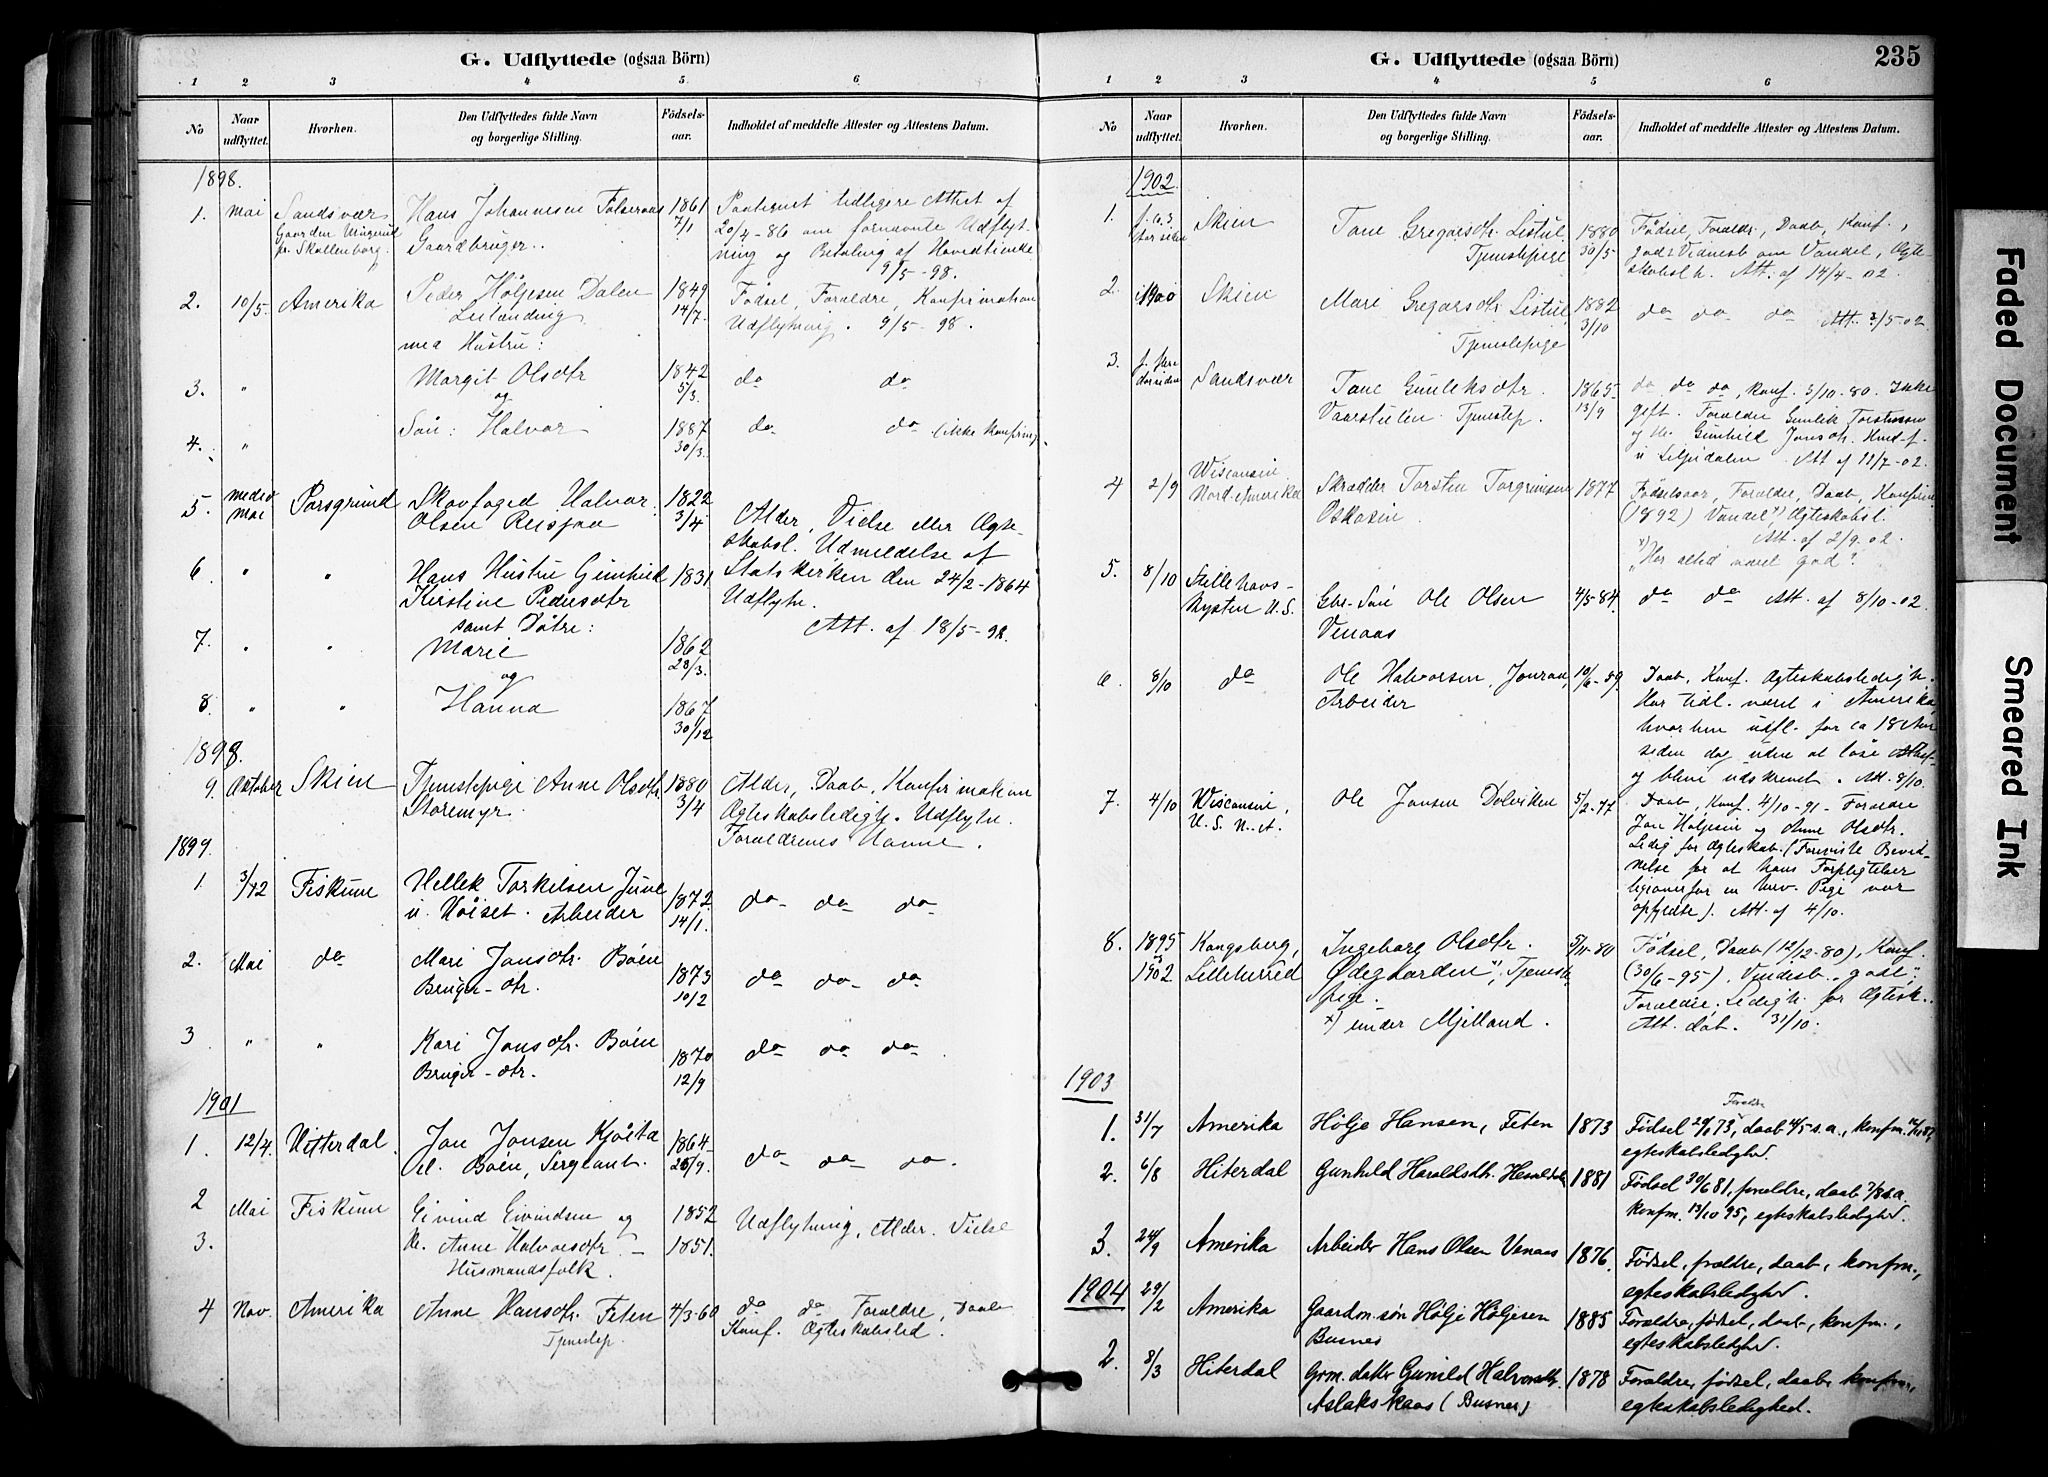 G. Udflyttede (ogsaa Börn)
1 2 3 4 5. 6.
No
Naar udflyttet.
Hvorhen.
Den Udflyttedes fulde Navn og borgerlige Stilling.
Födsels-aar.
Indholdet af meddelte Attester og Attestens Datum.
1898.
1. Mai Sandsvær Hans Johannesen 1861 7/1
Gaarden
pr. Skollenborg. Gaardbruger.
20/4-86 om
ning og Betaling af
9/5-98.
2. 10/5 Amerika Peder Höljesen Dalen 1849 14/7. Födsel, Foraldre, Konfirmation
Udflytning. 9/5-98.
med Hustru:
3. " Margit Olsdtr 1842 5/3. do do
og
4. " Sön: Halvor 1887 30/3. do do (ikke Konfirm.
5. Mai Porsgrund Skovfoged Halvor 1822 3/4 Alder, Vielse eller Ægte-
Olsen skabsl. Udmeldelse af
6 " " Hans Hustru Gunhild 1831 Statskirken den 24/2-1864
Kirstine Pedersdtr Udflytn.
samt Döttre: Att. af 18/5-98.
7. " " Marie 1862 28/3.
og
8. " " Hanna 1867 30/12
1898.
9. Oktober Skien Tjenestepige Anne Olsdtr 1880 3/4 Alder, Daab, Konfirmation
Storemyr. Ægteskabsledigh. Udflytn.
Foraldrenes Navne.
1899.
1. 3/12 Fiskum Hellek Torkilsen 1872. 14/1. do do do
Arbeider
2. Mai do Mari Jonsdtr. Böen 1873 10/2 do do do
Bruger-dtr.
3 " " Kari Jonsdtr. Böen 1870 12/9 do do do
Bruger-dtr.
1901
1. 12/4 Hitterdal. Jon Jonsen 1864 do do do.
Böen,
2 Mai Fiskum Eivind Eivindsen og 1852 Udflytning, Alder. Vielse
3. K. Anne Halvorsdtr. 1851.
Husmandsfolk.
4 Nov. Amerika Anne Hansdtr. Feten 4/3-60 do do Foraldre, Daab
Tjenestep. Konf. Ægteskabsled.
G. Udflyttede (ogsaa Börn) 235
1 2 3 4 5 6
No
Naar udflyttet.
Hvorhen.
Den Udflyttedes fulde Navn og borgerlige Stilling.
Födsels-aar.
Indholdet af meddelte Attester og Attestens Datum.
1902.
1. Skien Tone Gregarsdtr. Listul 1880 30/5 Födsel, Foraldr., Daab, Konf.,
Tjenestepige godt Vidnesb om Vandel, Ægte-
skabsl h. Att. af 14/4-02.
2. 1900 Skien Mari Gregarsdtr Listul 1882 3/10 do do do Att. 3/5-02
Tjenestepige
3. Sandsvær Tone Gunleksdtr. 1865 13/9 do do do, Konf. 3/10-80. Ikke
Tjenestep. gift. Foraldre Gunlik
og K. Gunhild Jonsdtr.
Att af 11/7-02.
4 2/9 Wisconsin Nord-Amerika Skrædder Torsten Torgrimsen 1877 Födselsaar, Foraldre, Daab, Konfirm
(1892) Vandel x), Ægteskabsl.
Att. af 2/9.02.
x) "Har altid været god".
5. 8/10 Stillehavs-kysten U.S. Gbr-Sön Ole Olsen 4/5-84. do do Att. af 8/10-02.
Venaas
6. 8/10 do Ole Halvorsen, 10/6-59. Daab, Konf. Ægteskabsledigh.
Arbeider Har tidl. været i Amerika,
hvorhen udfl. for ca 18 Aar
siden dog uden at löse Attest
og blive udskrevet. Att. 8/10.
7. 4/10 Wisconsin, U.S. N.A. Ole Jonsen Dolviken 5/2-77 Daab, Konf. 4/10-91. Foraldre
Jon Höljesen og Anne Olsdtr.
Ledig for Ægteskab. (Foreviste Bevid-
nelse for at hans Forpligtelser
ligeoverfor en Pige var
opfyldte). Att. af 4/10.
8. 1895 1902 Kongsberg, Ingeborg Olsdtr. 5/11-80 Födsel, Daab (12/12-80), Konf.
Ødegaarden x), Tjeneste- (30/6-95). Vidnesb. "godt".
pige. Foraldre. Ledigh. for Ægtesk.
x) under Mjelland. Att. dat. 31/10.
1903
1. 31/7 Amerika Hølje Hansen, Feten 1873 Foraldre
Fødsel 73, daab s.a., konfm.
egteskabsledighed.
2. 6/8 Hiterdal Gunhild Haroldsdtr. 1881 Fødsel 30/6 81, forældre, daab 7/8 s.a.
konfm. 13/10 95, egteskabsledighed.
3. 24/9 Amerika Arbeider Hans Olsen Venaas 1876. Fødsel, forældre, daab, konfm.,
egteskabsledighed.
1904
29/2 Amerika Gaardm. søn Hølje Høljesen 1885 Foraldre, fødsel, daab, konfm.,
Busnes egteskabsledighed.
2. 8/3 Hiterdal Grm. datter Gunild Halvorsdtr. 1878 Foraldre, fødsel, daab, konfm.,
Aslakskaas (Busnes) egteskabsledighed.
Faded Document
Smeared Ink